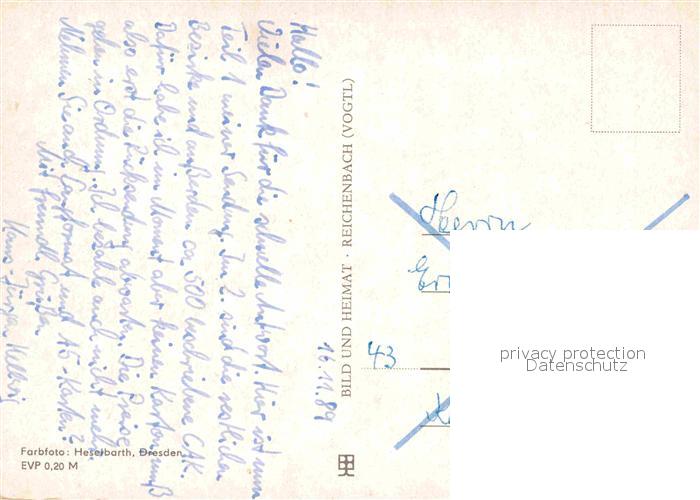 16.11.89
Hallo!
Vielen Dank für die schnelle Antwort. Hier ist nun
Teil 1 meiner Sendung. Im 2. sind die restlichen
Bezirke und außerdem ca. 500 CAK.
Dafür habe ich im Moment aber keinen Karton, muß
also erst die Rücksendung abwarten. Die Preise
gehen in Ordnung. Ich bezahle auch nicht mehr.
Nehmen Sie auch und A5-Karten?
Mit freundl. Grüßen
Hans-Jürgen
BILD UND HEIMAT · REICHENBACH (VOGTL)
Farbfoto: Heselbarth, Dresden
EVP 0,20 M
Herrn
43
privacy protection
Datenschutz